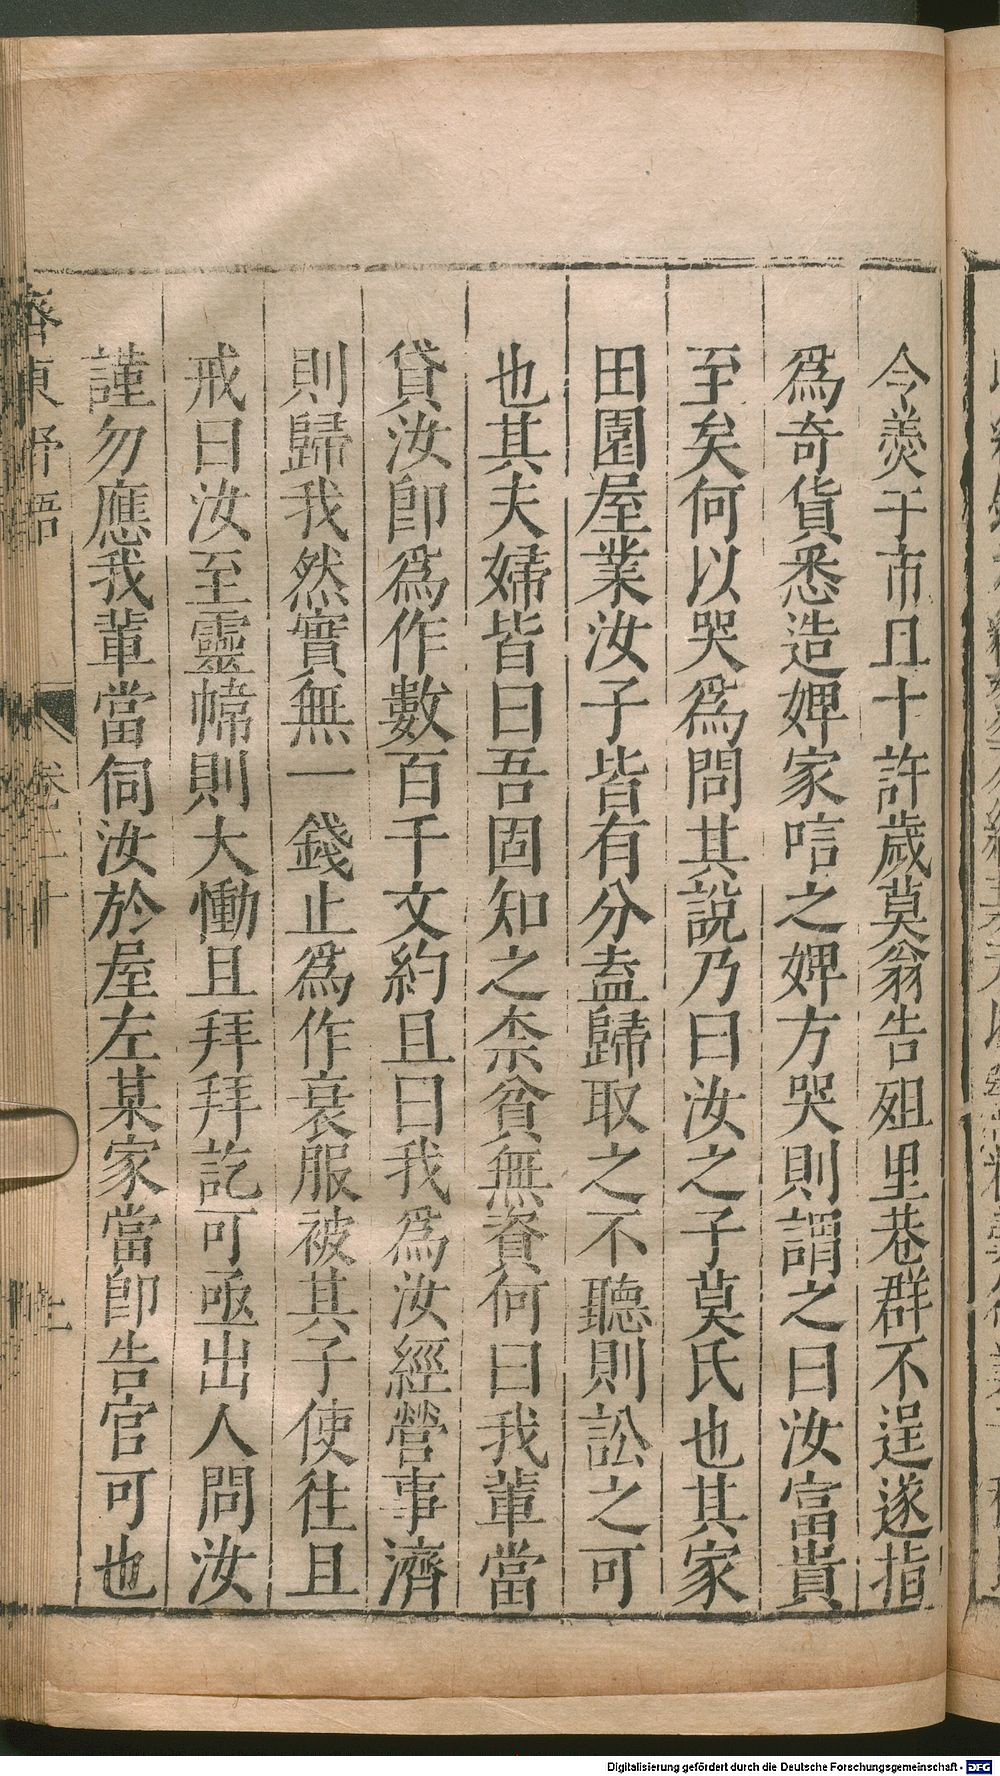 今羮于市且十許歲莫翁告殂里巷群不逞遂指
爲奇貨悉造婢家唁之婢方哭則謂之曰汝富貴
至矣何以哭爲問其說乃曰汝之子莫氏也其家
田園屋業汝子皆有分盍歸取之不聽則訟之可
也其夫婦皆曰吾固知之柰貧無資何曰我輩當
貸汝卽爲作數百千文約且曰我爲汝經營事濟
則歸我然實無一錢止爲作衰服被其子使往且
戒曰汝至靈幃則大慟且拜拜訖可亟出人問汝
謹勿應我輩當伺汝於屋左某家當卽告官可也
齊東野語
卷二十
Digitalisierung gefördert durch die Deutsche Forschungsgemeinschaft - DFG